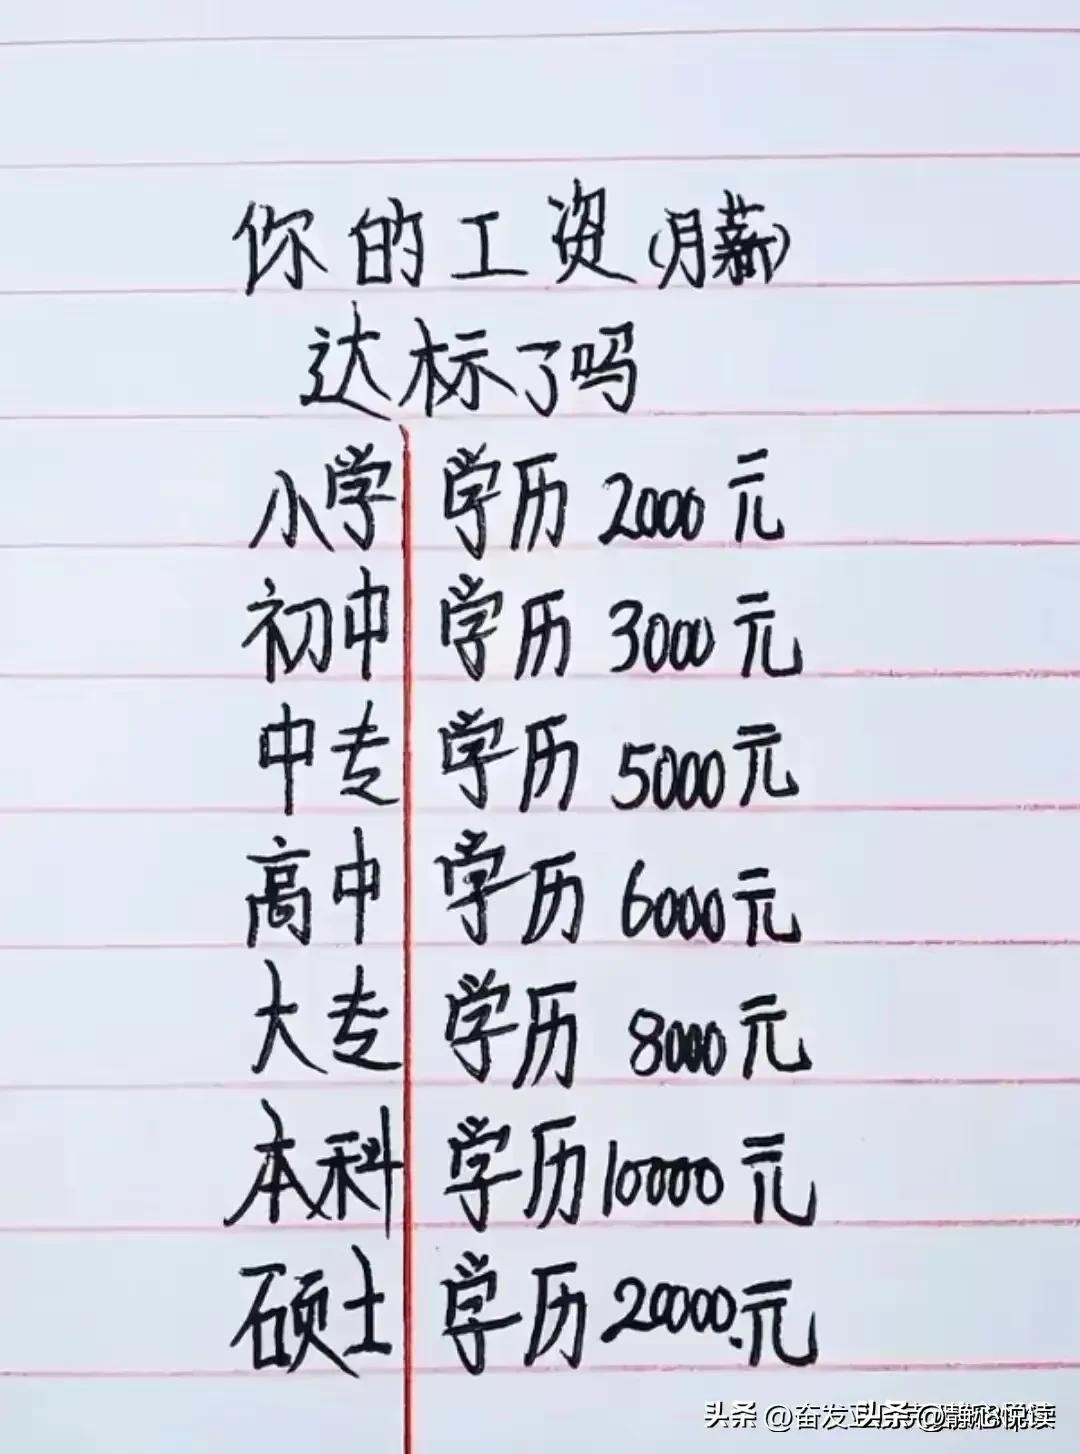 你的工资(月薪)
达标了吗
小学学历2000元
初中学历3000元
中专学历5000元
高中学历6000元
大专学历8000元
本科学历10000元
硕士学历20000元
头条 @静心悦读